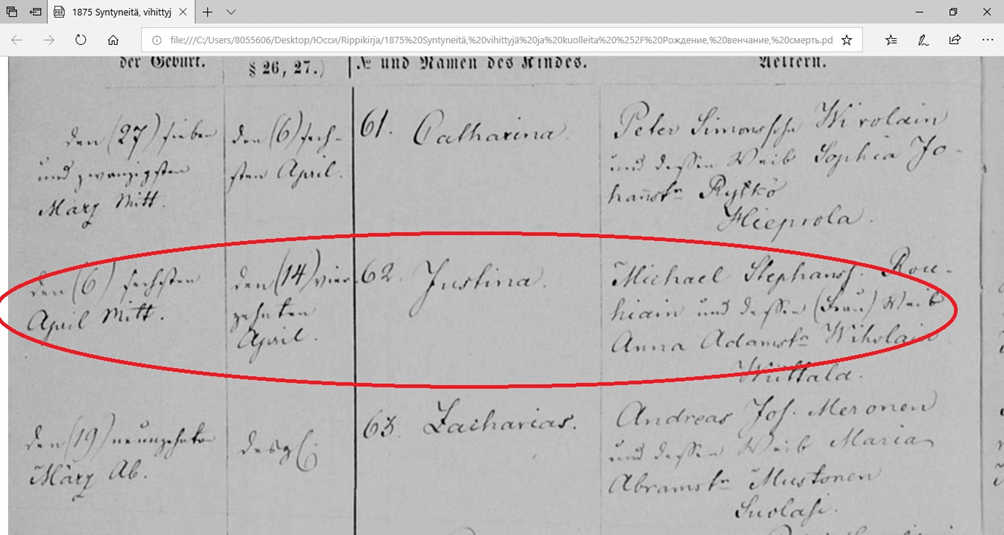 1875 Syntyneitä, vihittyj
file:///C:/Users/8055606/Desktop/Юсси/Rippikirja/1875%20Syntyneitä,%20vihittyjä%20ja%20kuolleita%20%252F%20Рождение,%20венчание,%20смерть.pd
der Geburt.
§ 26, 27.)
№ und Namen des Kindes.
Aeltern.
den (27) sieben
und zwanzigsten
März Mitt.
den (6) sech-
sten April.
61. Catharina.
Peter Simonssohn Wirolain
und dessen Weib Sophia Jo-
hanstr Rytkö
Hieprola.
den (6) sechsten
April Mitt.
den (14) vier-
zehnten
April.
62. Justina.
Michael Stephanss. Rou-
hiain und dessen (Frau) Weib
Anna Adamstr Wiholain
den (19) neunzehnten
März Ab.
desgl.
63. Zacharias.
Andreas Jos. Meronen
und dessen Weib Maria
Abramstr Mustonen
Suolasi.